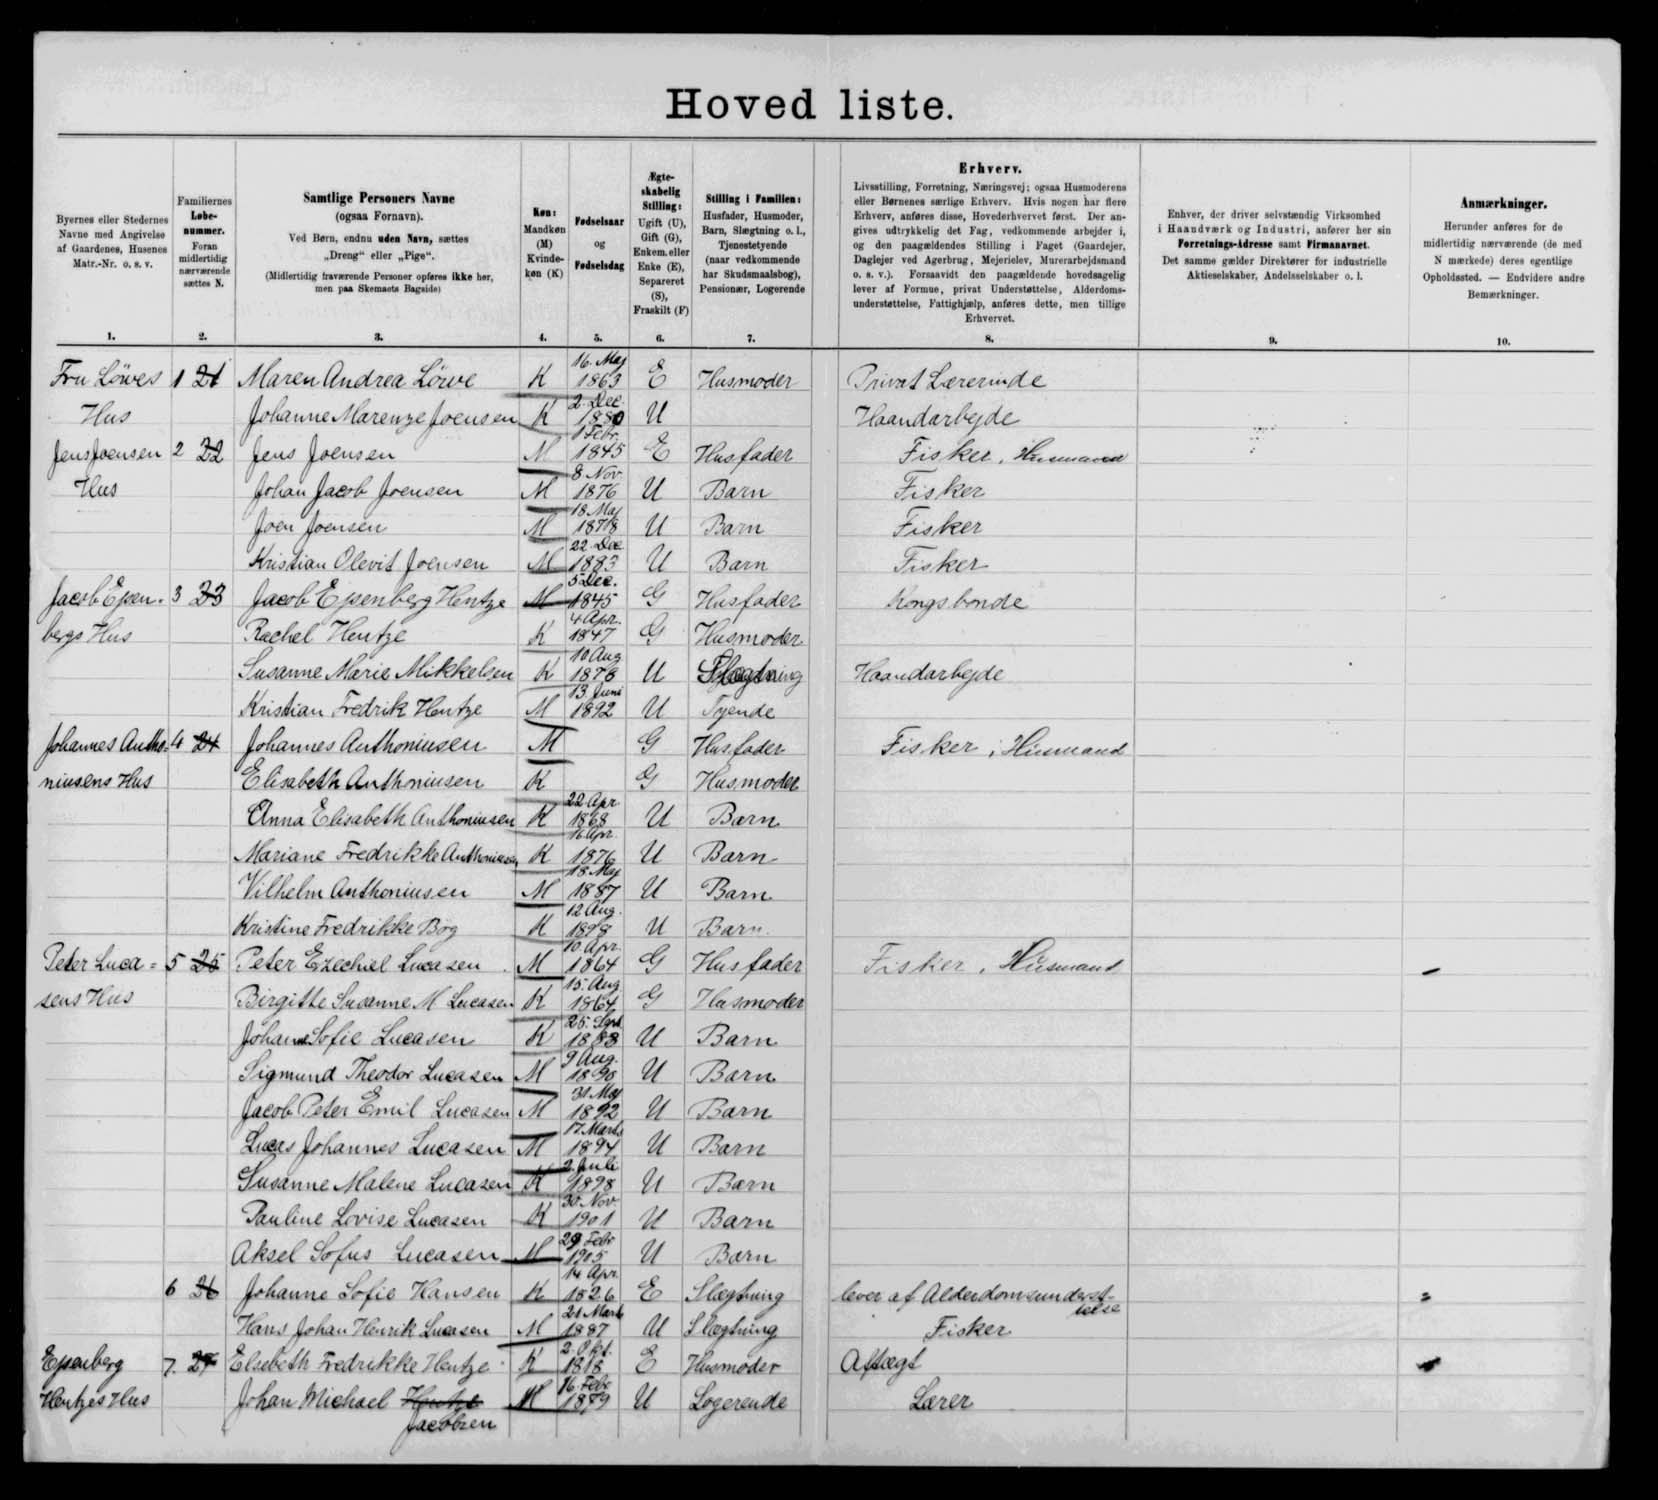 Hoved liste.
Byernes eller Stedernes Navne med Angivelse af Gaardenes, Husenes Matr.-Nr. o. s. v.
Familiernes Løbenummer. Foran midlertidig nærværende sættes N.
Samtlige Personers Navne (ogsaa Fornavn). Ved Børn, endnu uden Navn, sættes „Dreng“ eller „Pige“. (Midlertidig fraværende Personer opføres ikke her, men paa Skemaets Bagside)
Køn: Mandkøn (M) Kvindekøn (K)
Fødselsaar og Fødselsdag
Ægteskabelig Stilling: Ugift (U), Gift (G), Enkem. eller Enke (E), Separeret (S), Fraskilt (F)
Stilling i Familien: Husfader, Husmoder, Barn, Slægtning o. l., Tjenestetyende (naar vedkommende har Skudsmaalsbog), Pensionær, Logerende
Erhverv. Livsstilling, Forretning, Næringsvej; ogsaa Husmoderens eller Børnenes særlige Erhverv. Hvis nogen har flere Erhverv, anføres disse, Hovederhvervet først. Der angives udtrykkelig det Fag, vedkommende arbejder i, og den paagældendes Stilling i Faget (Gaardejer, Daglejer ved Agerbrug, Mejerielev, Murerarbejdsmand o. s. v.). Forsaavidt den paagældende hovedsagelig lever af Formue, privat Understøttelse, Alderdomsunderstøttelse, Fattighjælp, anføres dette, men tillige Erhvervet.
Enhver, der driver selvstændig Virksomhed i Haandværk og Industri, anfører her sin Forretnings-Adresse samt Firmanavnet. Det samme gælder Direktører for industrielle Aktieselskaber, Andelsselskaber o. l.
Anmærkninger. Herunder anføres for de midlertidig nærværende (de med N mærkede) deres egentlige Opholdssted. — Endvidere andre Bemærkninger.
1. 2. 3. 4. 5. 6. 7. 8. 9. 10.
Fru Löwes 1 21 Maren Andrea Löwe K 16. Maj 1863 E Husmoder Privat Lærerinde
Hus Johanne Marenze Joensen K 2. Dec. 1880 U Haandarbejde
Jens Joensen 2 22 Jens Joensen M 1 Febr. 1845 E Husfader Fisker, Husmand
Hus Johan Jacob Joensen M 8 Nov. 1876 U Barn Fisker
Joen Joensen M 18 Maj 1878 U Barn Fisker
Kristian Olevit Joensen M 22 Dec 1883 U Barn Fisker
Jacob Epen- 3 23 Jacob Epenberg Hentze M 5 Dec. 1845 G Husfader Kongsbonde
bergs Hus Rachel Hentze K 4 Apr. 1847 G Husmoder
Susanne Marie Mikkelsen K 10 Aug 1876 U Slægtning Haandarbejde
Kristian Fredrik Hentze M 13 Juni 1892 U Tyende
Johannes Antho= 4 24 Johannes Anthoniusen M G Husfader Fisker, Husmand
niusens Hus Elisabeth Anthoniusen K G Husmoder
Anna Elisabeth Anthoniusen K 22 Apr. 1868 U Barn
Mariane Fredrikke Anthoniusen K 16 Apr. 1876 U Barn
Vilhelm Anthoniusen M 18 Maj 1887 U Barn
Kristine Fredrikke Bog K 12 Aug. 1898 U Barn
Peter Luca= 5 25 Peter Ezechiel Lucasen M 10 Apr. 1864 G Husfader Fisker, Husmand
sens Hus Birgitte Susanne M Lucasen K 15. Aug 1864 G Husmoder
Johanne Sofie Lucasen K 25. Sept 1888 U Barn
Sigmund Theodor Lucasen M 9 Aug. 1890 U Barn
Jacob Peter Emil Lucasen M 31 Maj 1892 U Barn
Lucas Johannes Lucasen M 17 Marts 1894 U Barn
Susanne Malene Lucasen K 2. Juli 1898 U Barn
Pauline Lovise Lucasen K 30 Nov. 1901 U Barn
Aksel Sofus Lucasen M Febr 1905 U Barn
6 26 Johanne Sofie Hansen K 14 Apr. 1826 E Slægtning lever af Alderdomsunderst-
telse
Hans Johan Henrik Lucasen M 21 Marts 1887 U Slægtning Fisker
Epenberg 7. 27 Elsebeth Fredrikke Hentze K 2. Okt. 1818 E Husmoder Aftægt
Hentzes Hus Johan Michael Hentze M 16. Febr 1879 U Logerende Lærer
Jacobsen